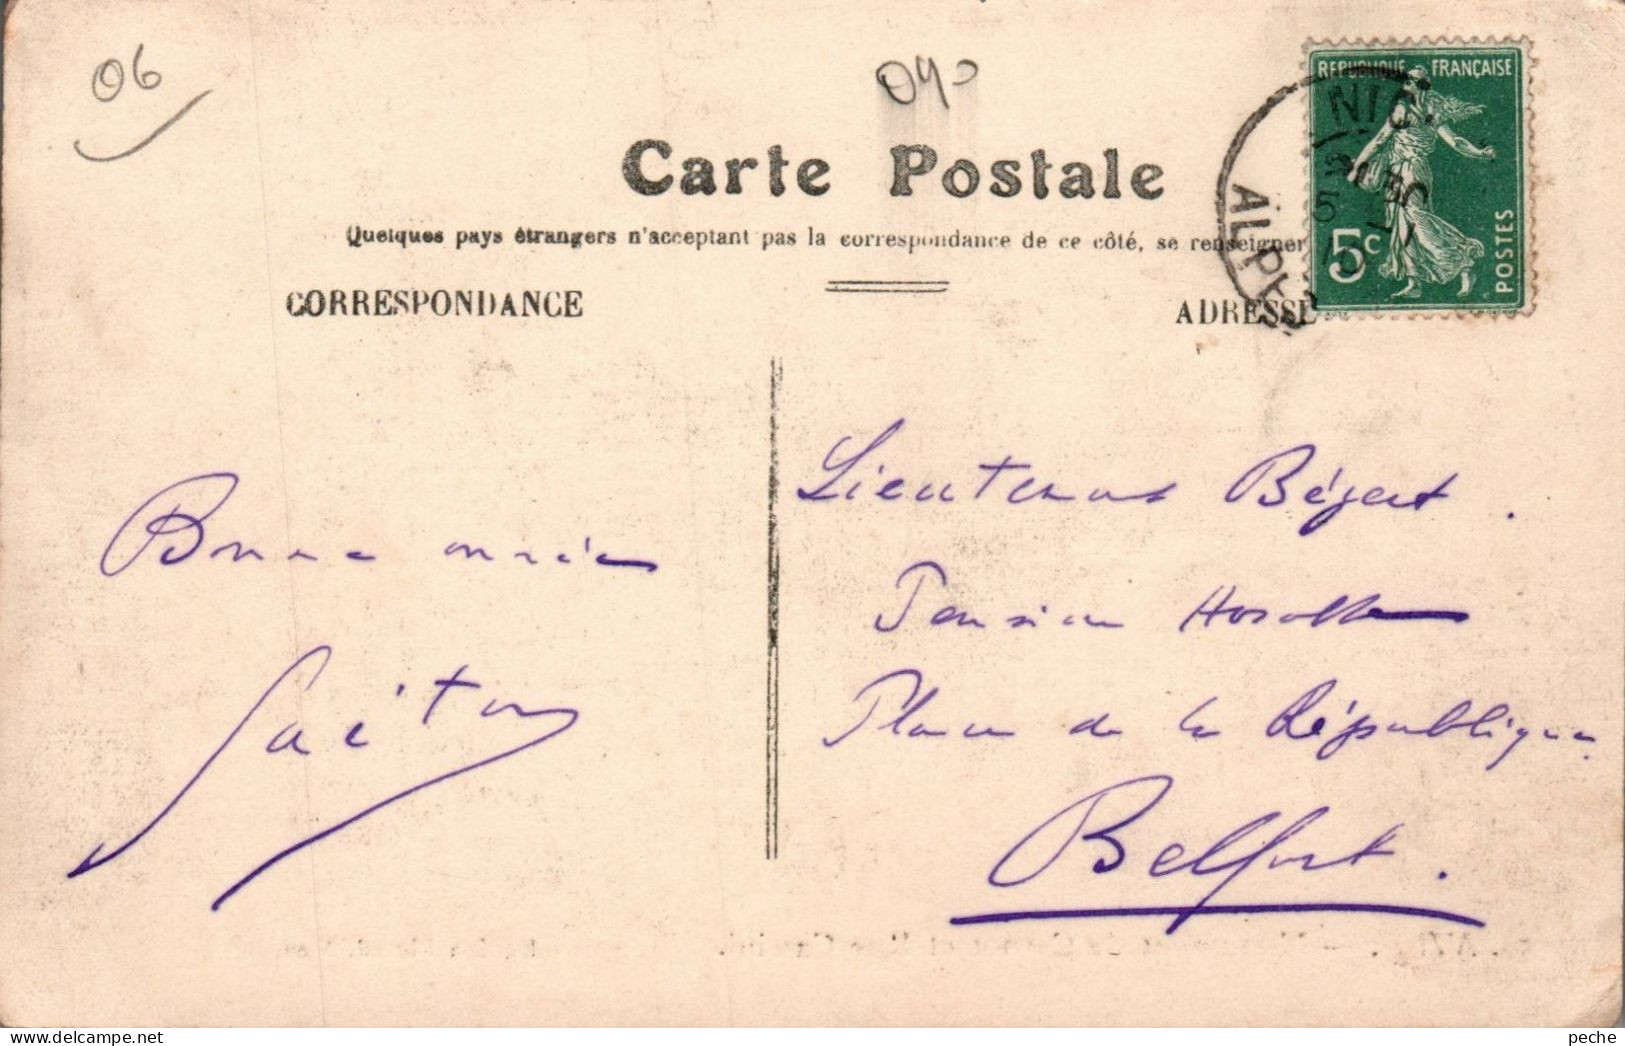 06
Carte Postale
Quelques pays étrangers n'acceptant pas la correspondance de ce côté, se renseigner
CORRESPONDANCE
ADRESSE
REPUBLIQUE FRANÇAISE
5c
POSTES
NIC
ALPES
Bonne année
Gaëtan
Lieutenant
Pension
Place de la République
Belfort.
delcampe.net
peche